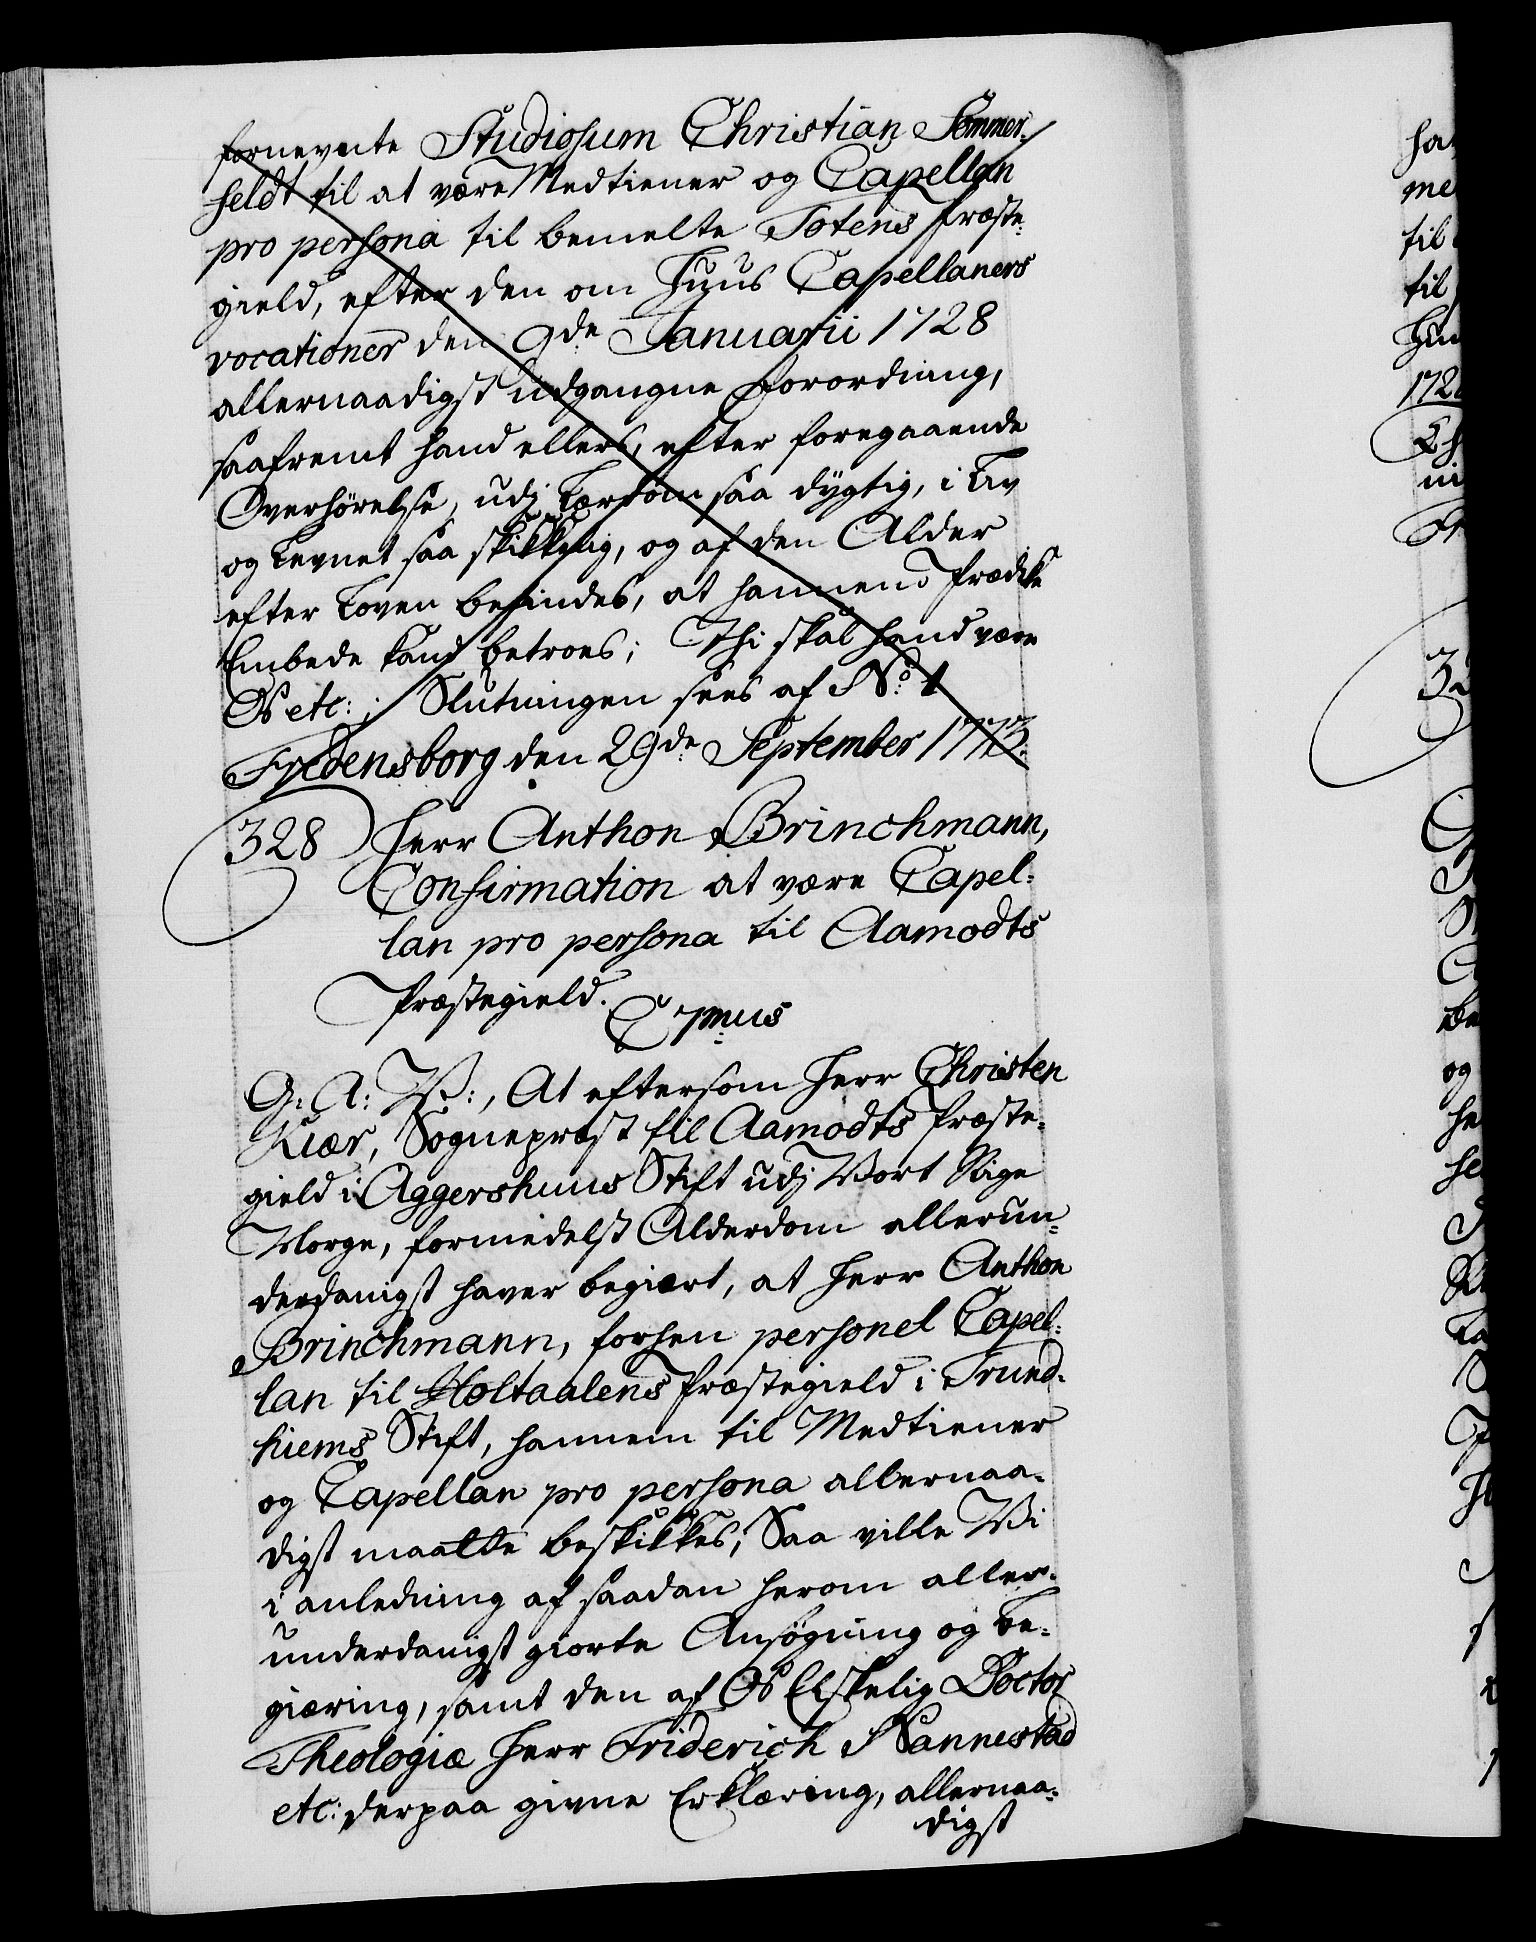 fornevnte Studiosum Christian Sommer-
feldt til at være Medtiener og Capellan
pro persona til bemelte Totens Præste-
gield, efter den om Huus Capellaners
vocationer den 9de Januarii 1728
allernaadigst udgangne Forordning,
saafremt hand ellers, efter foregaaende
Overhørelse, udj Lærdom saa dygtig, i Liv
og Levnet saa skikkelig, og af den Alder
efter Loven befindes, at hannem Prædike
Embede kand betroes; Thi skal hand være
Os etc: ; Slutningen sees af No: 1
Fredensborg den 29de September 1773.
328 Herr Anthon Brinchmann,
Confirmation at være Capel-
lan pro persona til Aamodts
Præstegield.
C 7mus
G: A: V:, At eftersom Herr Christen
Kiær, Sognepræst til Aamodts Præste-
gield i Aggershuus Stift udj Vort Rige
Norge, formedelst Alderdom allerun-
derdanigst haver begiært, at Herr Anthon
Brinchmann, forhen personel Capel-
lan til Holtaalens Præstegield i Trund-
hiems Stift, hannem til Medtiener
og Capellan pro persona allernaa-
digst maatte beskikkes; Saa ville Vi
i anledning af saadan herom aller-
underdanigst giorte Ansøgning og Be-
giæring, samt den af Os Elskelig Doctor
Theologiæ Herr Friderich Nannestad
etc: derpaa givne Erklæring, allernaa-
digst